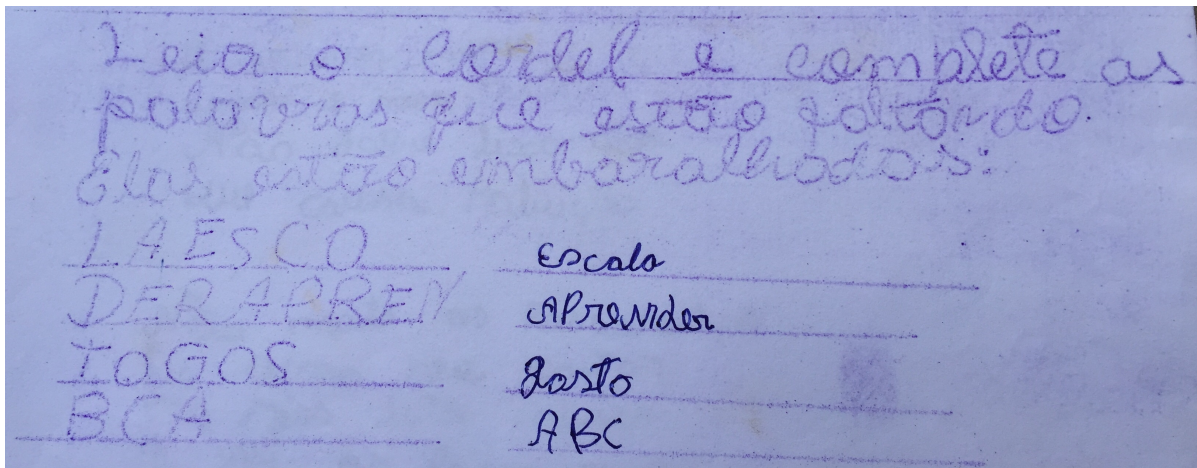 Leia o cordel e complete as
palavras que estão faltando.
Elas estão embaralhadas:
LAESCO Escola
DERAPREN APreNder
TOGOS gosto
BCA ABC